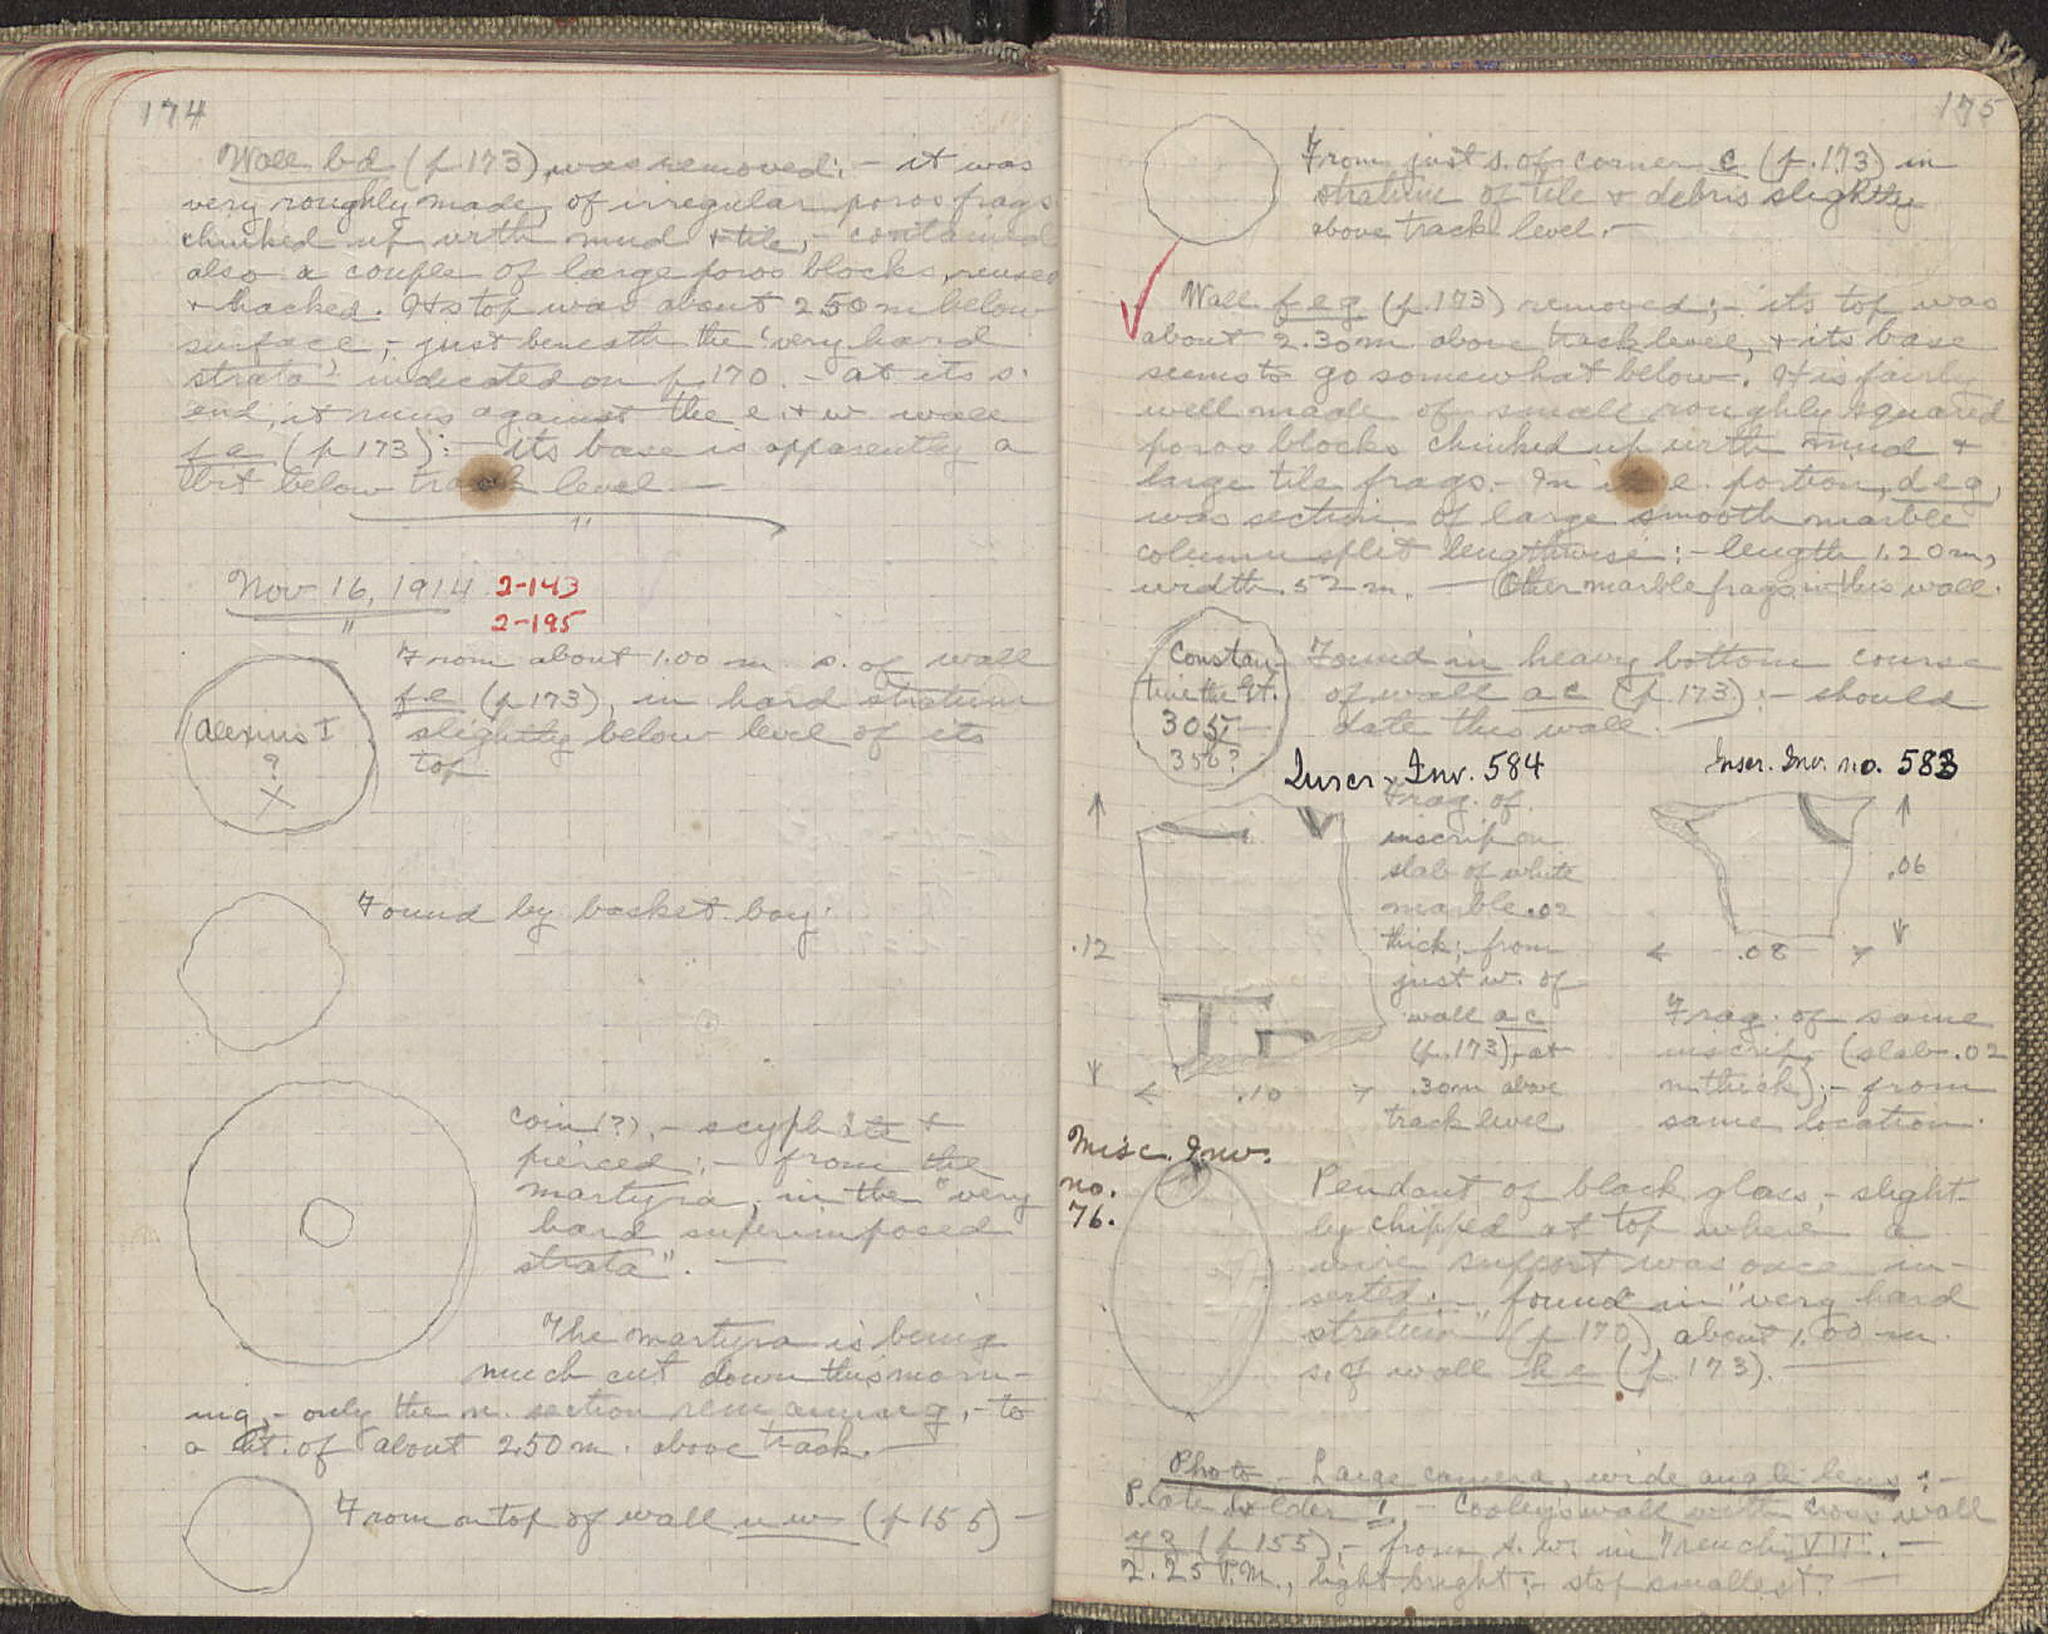 174
Wall bd (p.173), was removed: - it was
very roughly made, of irregular poros frags
chinked up with mud & tile, - contained
also a couple of large poros blocks, reused
& hacked. Its top was about 2.50 m below
surface, - just beneath the "very hard
strata" indicated on p.170. - At its s.
end, it runs against the e. & w. wall
fe (p 173): - its base is apparently a
bit below track level. -
Nov 16, 1914 2-143
2-195
From about 1.00 m s. of wall
fe (p 173), in hard stratum
slightly below level of its
top
Alexius I
?
X
Found by basket boy.
Coin (?), - scyphate &
pierced; - from the
martyra, in the "very
hard superimposed
strata". -
The martyra is being
much cut down this morn-
ing, - only the n. section remaining, - to
a ht. of about 2.50 m. above track. -
From on top of wall uw (p 155) -
175
From just s. of corner c (p.173) in
stratum of tile & debris slightly
above track level. -
Wall feg (p.173) removed; - its top was
about 2.30 m above track level, & its base
seems to go somewhat below. It is fairly
well made of small roughly squared
poros blocks chinked up with mud &
large tile frags. - In e. portion, deg,
was section of large smooth marble
column split lengthwise: - length 1.20 m,
width .52 m. - Other marble frags in this wall.
Constan-
tine the Gt.
305-
356?
Found in heavy bottom course
of wall ac (p.173): - should
date this wall. -
Inscr. Inv. 584
Inscr. Inv. no. 583
Frag. of
inscrip on
slab of white
marble .02
thick; from
just w. of
wall ac
(p.173), at
.30m above
track level
.12
.10
.06
.08
Frag. of same
inscrip, (slab .02
m thick); - from
same location.
Misc. Inv.
no.
76.
Pendant of black glass, - slight-
ly chipped at top where a
wire support was once in-
serted: - found in "very hard
stratum" (p 170), about 1.00 m.
s. of wall he (p.173). -
Photo - Large camera, wide angle lens: -
Plate holder 1, - Cooley's wall with cross wall
yz (p 155), - from s.w. in Trench VII. -
2.25 P.M., light bright; - stop smallest. -